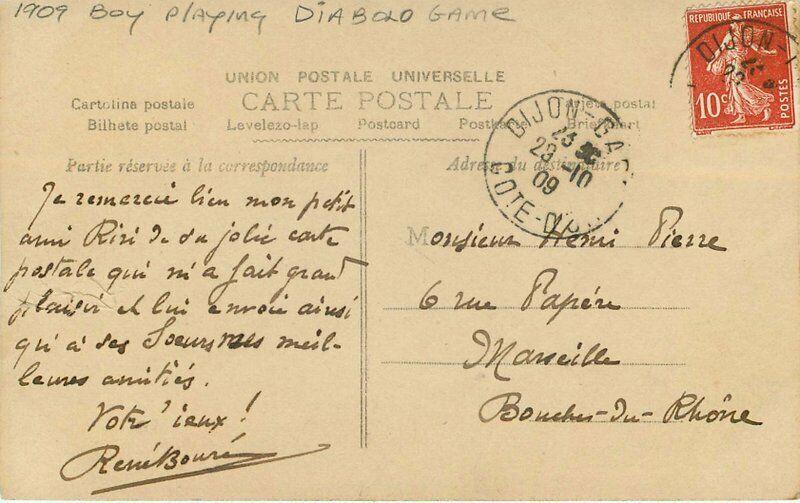 1909 Boy Playing DIABOLO GAME
REPUBLIQUE FRANÇAISE
10c
POSTES
DIJON-
23
UNION POSTALE UNIVERSELLE
CARTE POSTALE
Cartolina postale
postal
Bilhete postal Levelezo-lap Postcard
DIJON-GA
23
29-10
09
COTE-D'OR
Partie réservée à la correspondance
Adresse du destinataire
Je remercie bien mon petit
ami Riri de sa jolie carte
postale qui m'a fait grand
plaisir et lui envoie ainsi
qu'à ses Soeurs mes meil-
leures amitiés.
Votr' ieux!
René Bouré
Monsieur Henri Pierre
6 rue Papére
Marseille
Bouches-du-Rhône